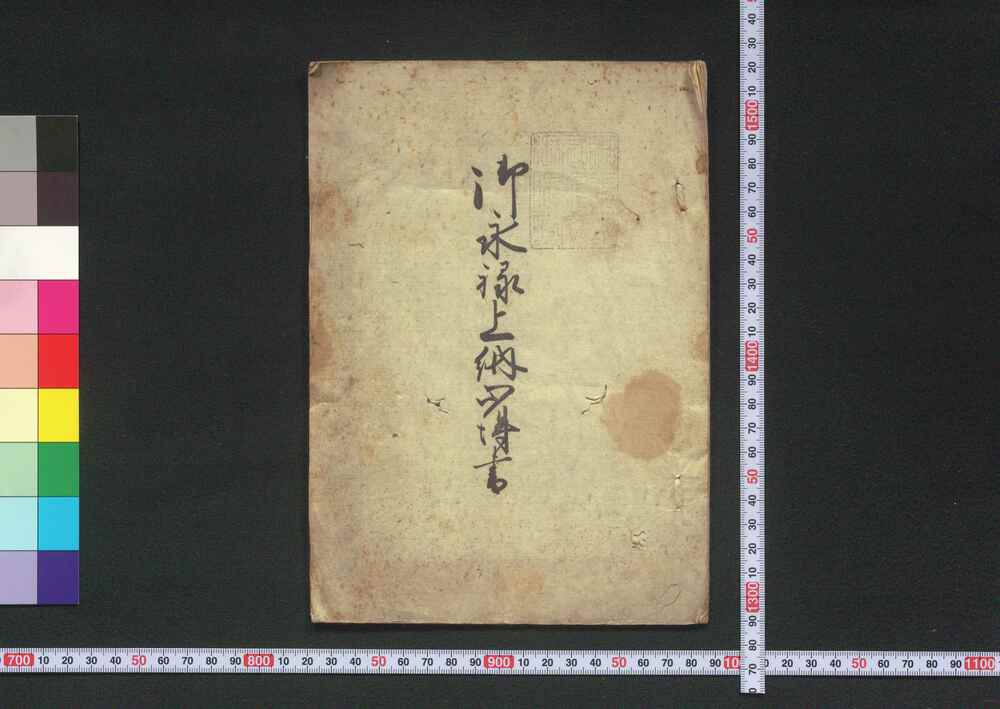 御永禄上納心得書
700 10 20 30 40 50 60 70 80 90 800 10 20 30 40 50 60 70 80 90 900 10 20 30 40 50 60 70 80 90 10 20 30 40 50 60 70 80 90 1100
40 30 20 10 1500 90 80 70 60 50 40 30 20 10 1400 90 80 70 60 50 40 30 20 10 1300 90 80 70